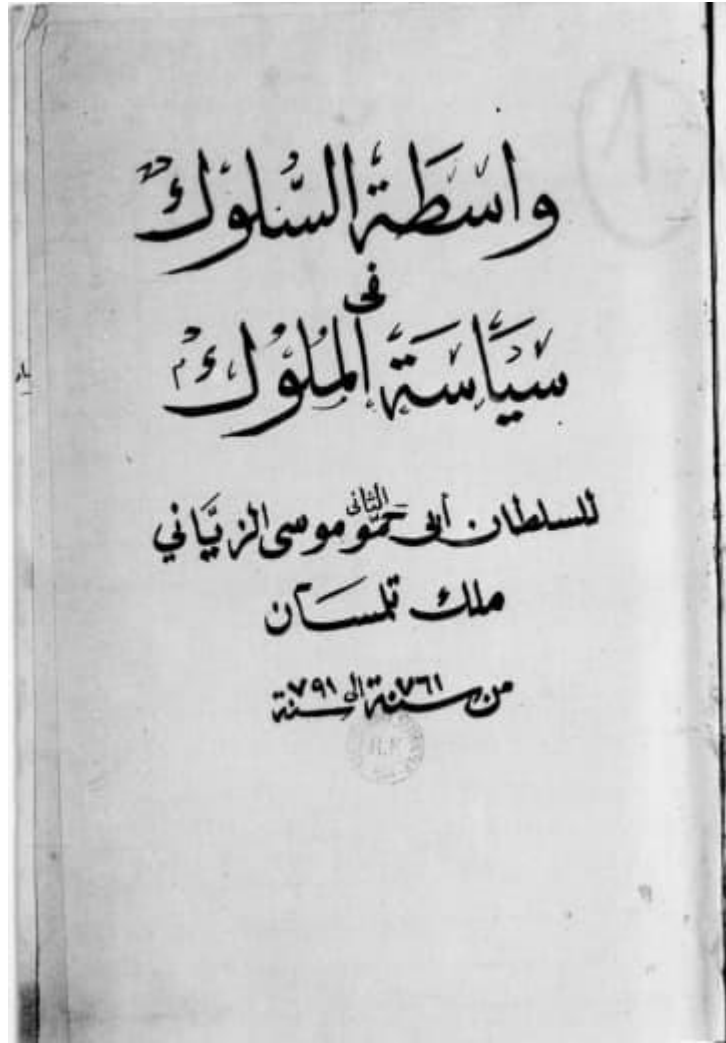 وَاسِطَةُ السُّلُوك
فى
سِيَاسَةِ المُلُوك
للسلطان أبى حمّو الثانى موسى الزيَّاني
ملك تلمسَان
من سنة ٧٦١ الى سنة ٧٩١